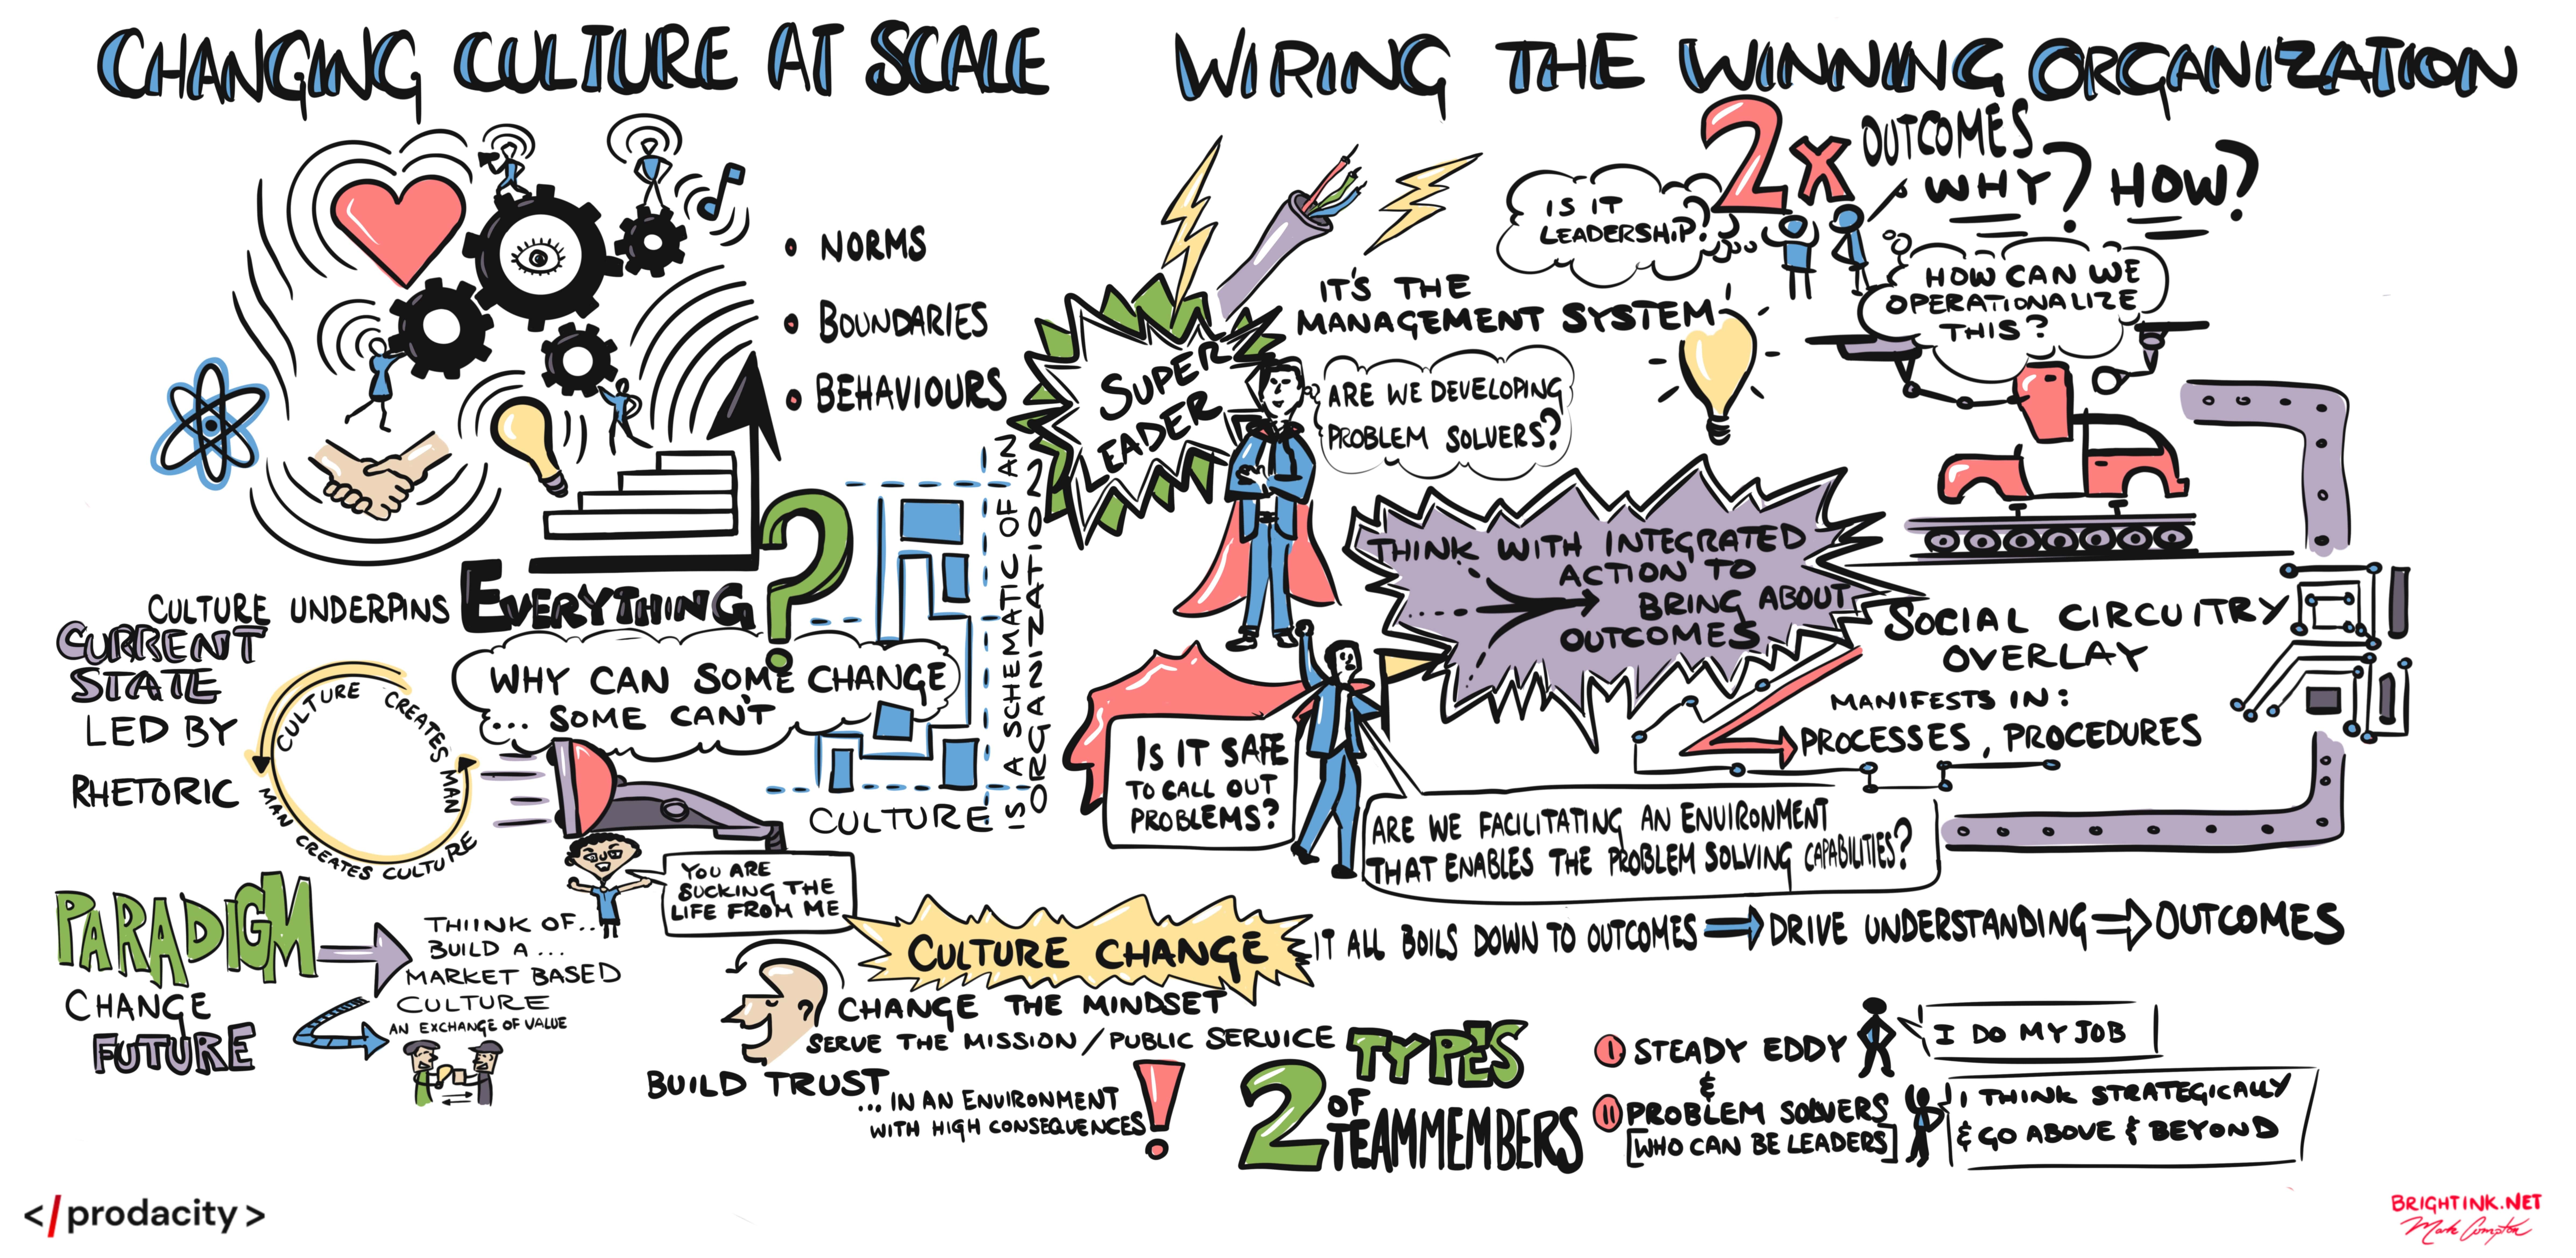 CHANGING CULTURE AT SCALE
• NORMS
• BOUNDARIES
• BEHAVIOURS
CULTURE UNDERPINS EVERYTHING
?
CURRENT
STATE
LED BY
RHETORIC
CULTURE CREATES MAN
MAN CREATES CULTURE
WHY CAN SOME CHANGE
... SOME CAN'T
CULTURE
IS A SCHEMATIC OF AN
ORGANIZATION
YOU ARE
SUCKING THE
LIFE FROM ME
PARADIGM
CHANGE
FUTURE
THIINK OF...
BUILD A ...
MARKET BASED
CULTURE
AN EXCHANGE OF VALUE
CULTURE CHANGE
CHANGE THE MINDSET
SERVE THE MISSION / PUBLIC SERVICE
BUILD TRUST
... IN AN ENVIRONMENT
WITH HIGH CONSEQUENCES
!
WIRING THE WINNING ORGANIZATION
2x OUTCOMES
WHY? HOW?
IS IT
LEADERSHIP?
HOW CAN WE
OPERATIONALIZE
THIS?
IT'S THE
MANAGEMENT SYSTEM!
SUPER
EADER
ARE WE DEVELOPING
PROBLEM SOLVERS?
THINK WITH INTEGRATED
ACTION TO
BRING ABOUT
OUTCOMES
SOCIAL CIRCUITRY
OVERLAY
MANIFESTS IN:
PROCESSES, PROCEDURES
IS IT SAFE
TO CALL OUT
PROBLEMS?
ARE WE FACILITATING AN ENVIRONMENT
THAT ENABLES THE PROBLEM SOLVING CAPABILITIES?
IT ALL BOILS DOWN TO OUTCOMES ⇒ DRIVE UNDERSTANDING ⇒ OUTCOMES
2 TYPES
OF
TEAMMEMBERS
I STEADY EDDY
&
II PROBLEM SOLVERS
[WHO CAN BE LEADERS]
I DO MY JOB
I THINK STRATEGICALLY
& GO ABOVE & BEYOND
</prodacity>
BRIGHTINK.NET